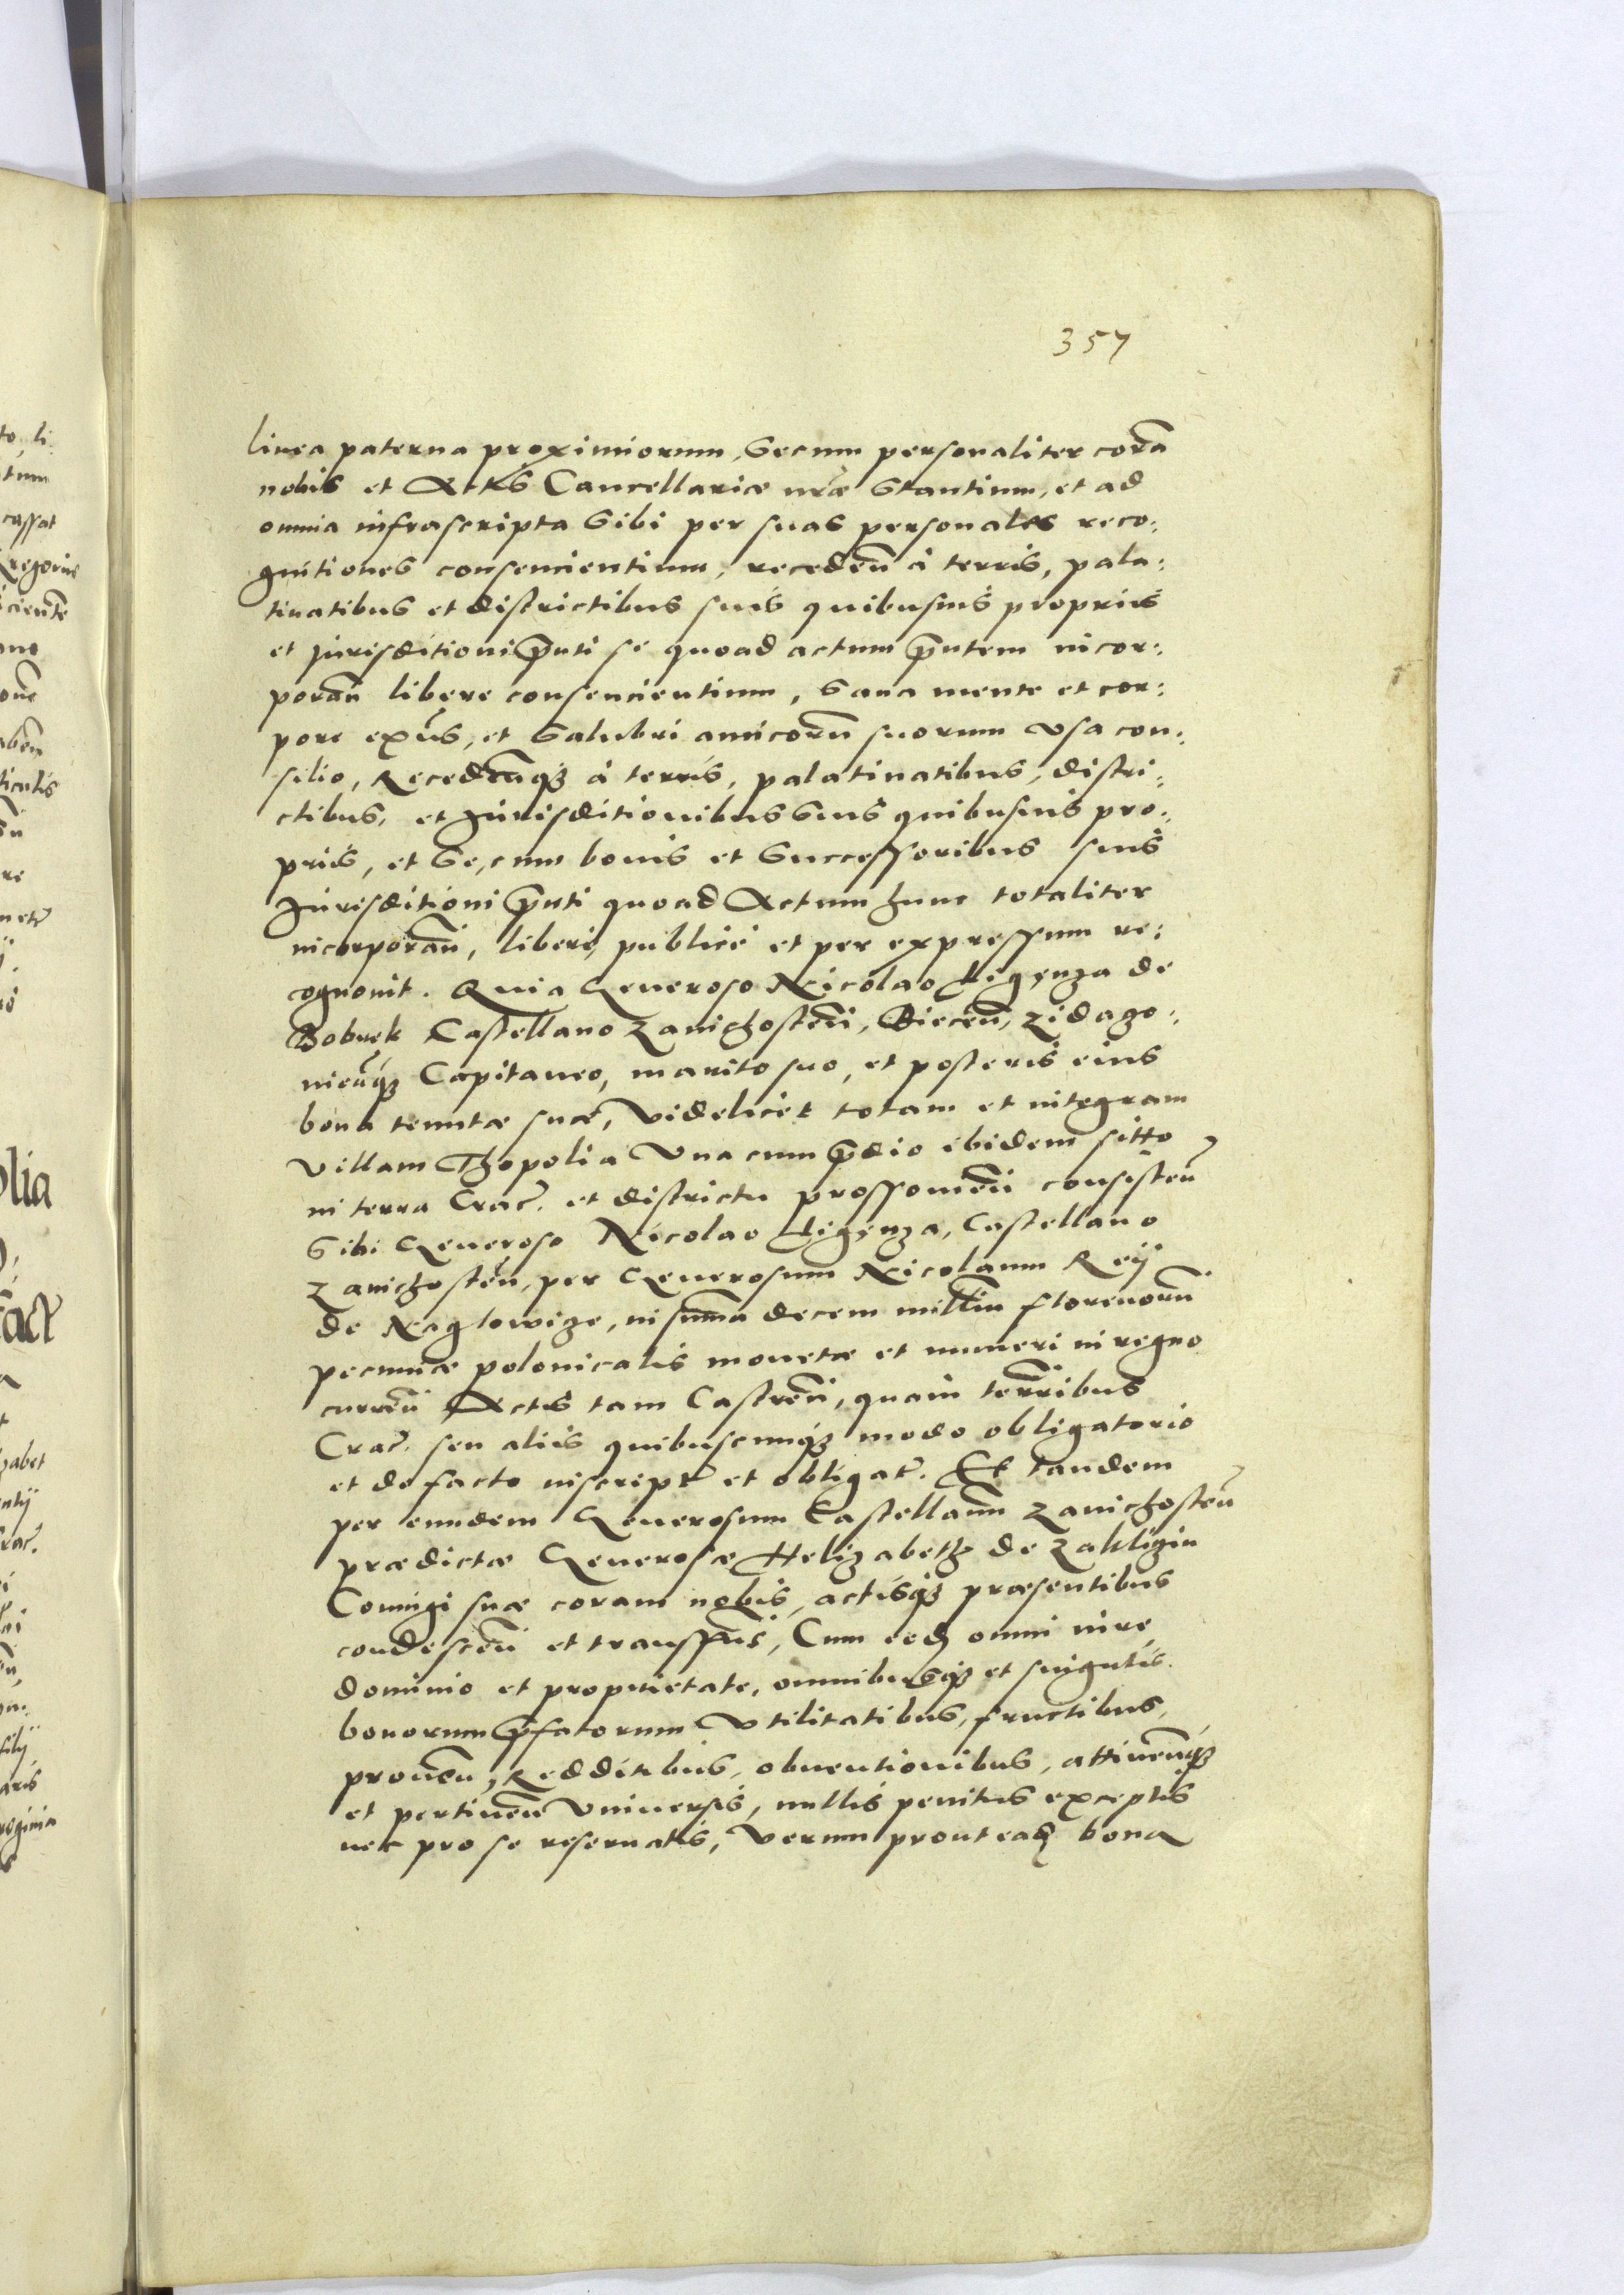 357
linea paterna proximiorum, secum personaliter corā
nobis et Actis Cancellariæ nr̄æ stantium, et ad
omnia infrascripta sibi per suas personales reco:
gnitiones consencientium, receden̄ à terris, pala:
tinatibus et districtibus suis quibusuis proprijs
et jurisditioni p̄nti se quoad actum p̄ntem incor:
poran̄ libere consencientium, sana mente et cor:
pore exn̄s, et salubri amicorū suorum vsa con:
silio, Recedenq3 à terris, palatinatibus, distri:
ctibus, et Jurisditionibus suis quibusuis pro:
prijs, et se, cum bonis et successoribus suis
Jurisditioni p̄nti quoad Actum hunc totaliter
incorporan̄, liberè, publicè et per expressum re:
cognouit. Quia Generoso Nicolao Ligęnza de
Bobrek Castellano Zawichosten̄, Biecen̄, Zidago:
nieńq3 Capitaneo, marito suo, et posteris eius
bona tenutæ suæ, videlicet totam et integram
villam Thopolia vna cum p̄dio ibidem sitto
in terra Crac̄. et districtu prossouien̄ consisten̄
sibi Generoso Nicolao Ligęnza, Castellano
Zawichosten̄, per Generosum Nicolaum Reij
de Naglowize, in sum̄a decem millium florenorū
pecuniæ polonicalis monetæ et numeri in regno
curren̄ Actis tam Castren̄, quam terr̄ribus
Crac̄. seu alijs quibuscunq3 modo obligatorio
et de facto inscript̄ et obligat̄. Et tandem
per eundem Generosum Castellanū Zawichosten̄
prædictæ Generosæ Helizabeth de Zakliczin
Coniugi suæ coram nobis, actisq3 præsentibus
condescen̄ et transfus̄, Cum eod̄ omni iure,
dominio et proprietate, omnibusq3 et singulis
bonorum p̄fatorum vtilitatibus, fructibus,
prouen̄, Redditibus, obuentionibus, attinenq3
et pertinen̄ vniuersis, nullis penitus exceptis
nec pro se reseruatis, verum prout ead̄ bona